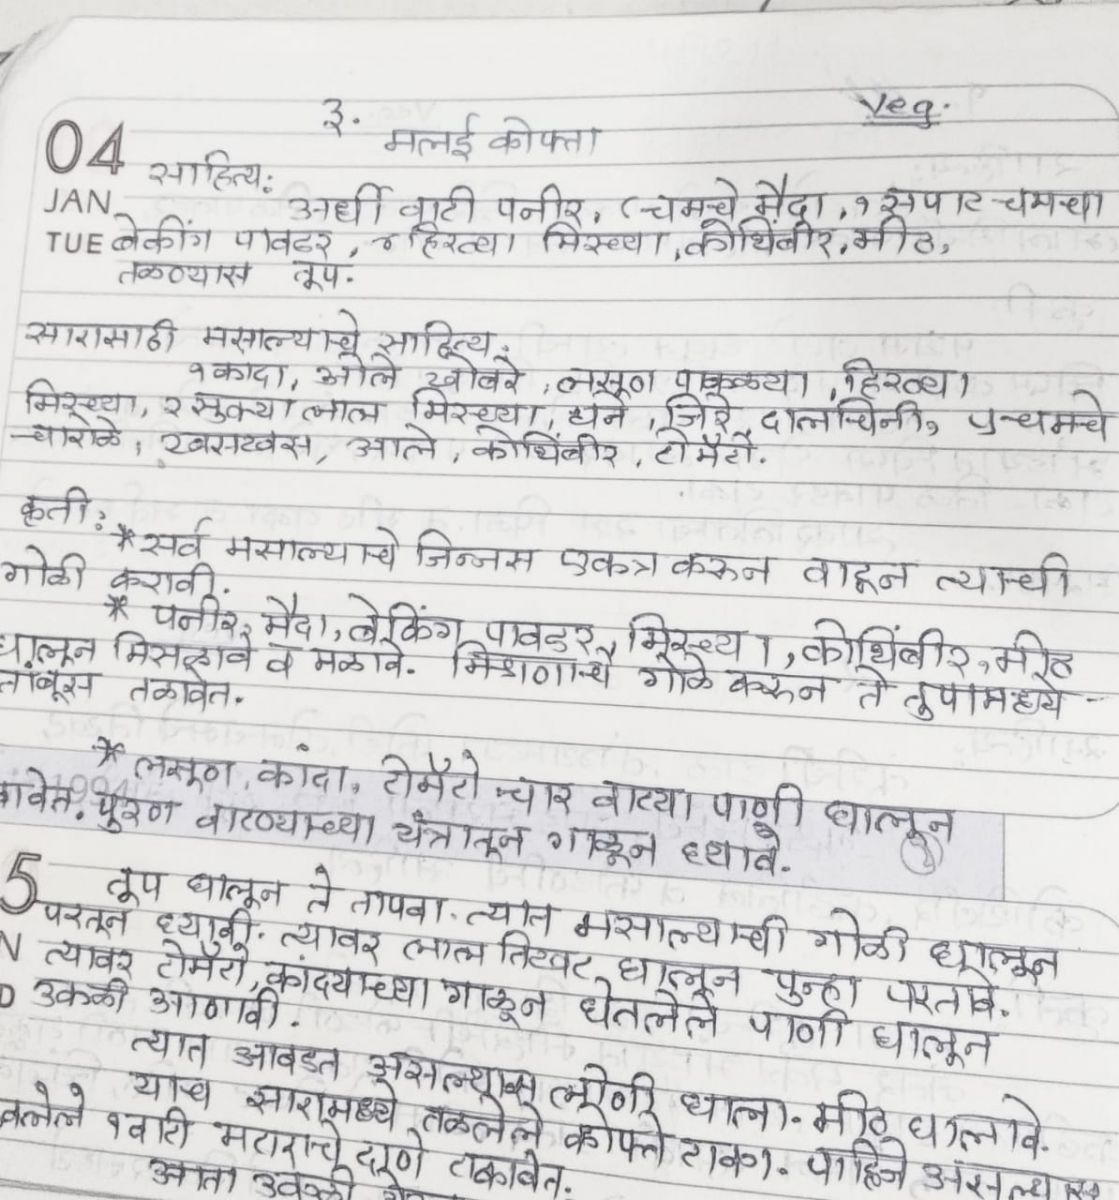 ३.
Veg.
मलई कोफ्ता
04
साहित्य:
JAN
अर्धी वाटी पनीर, ८ चमचे मैदा, १ सपाट चमचा
TUE
बेकींग पावडर, ४ हिरव्या मिरच्या, कोथिंबीर, मीठ,
तळण्यास तूप.
सारासाठी मसाल्याचे साहित्य:
१ कांदा, ओले खोबरे, लसूण पाकळ्या, हिरव्या
मिरच्या, २ सुक्या लाल मिरच्या, धने, जिरे, दालचिनी, ५ चमचे
चारोळे, खसखस, आले, कोथिंबीर, टोमॅटो.
कृती:
* सर्व मसाल्याचे जिन्नस एकत्र करून वाटून त्याची
गोळी करावी.
* पनीर, मैदा, बेकिंग पावडर, मिरच्या, कोथिंबीर, मीठ
घालून मिसळावे व मळावे. मिश्रणाचे गोळे करून ते तुपामध्ये -
तांबूस तळावेत.
* लसूण, कांदा, टोमॅटो चार वाट्या पाणी घालून
पुरण वाटण्याच्या यंत्रातून गाळून घ्यावे.
5
तूप घालून ते तापवा. त्यात मसाल्याची गोळी घालून
परतून घ्यावी. त्यावर लाल तिखट घालून पुन्हा परतावे.
N
त्यावर टोमॅटो, कांदयाच्या गाळून घेतलेले पाणी घालून
D
उकळी आणावी.
त्यात आवडत असल्यास लोणी घाला. मीठ घालावे.
याच सारामध्ये तळलेले कोफ्ते टाका. पाहिजे असल्यास
१ वाटी मटाराचे दाणे टाकावेत.
आता उकळी